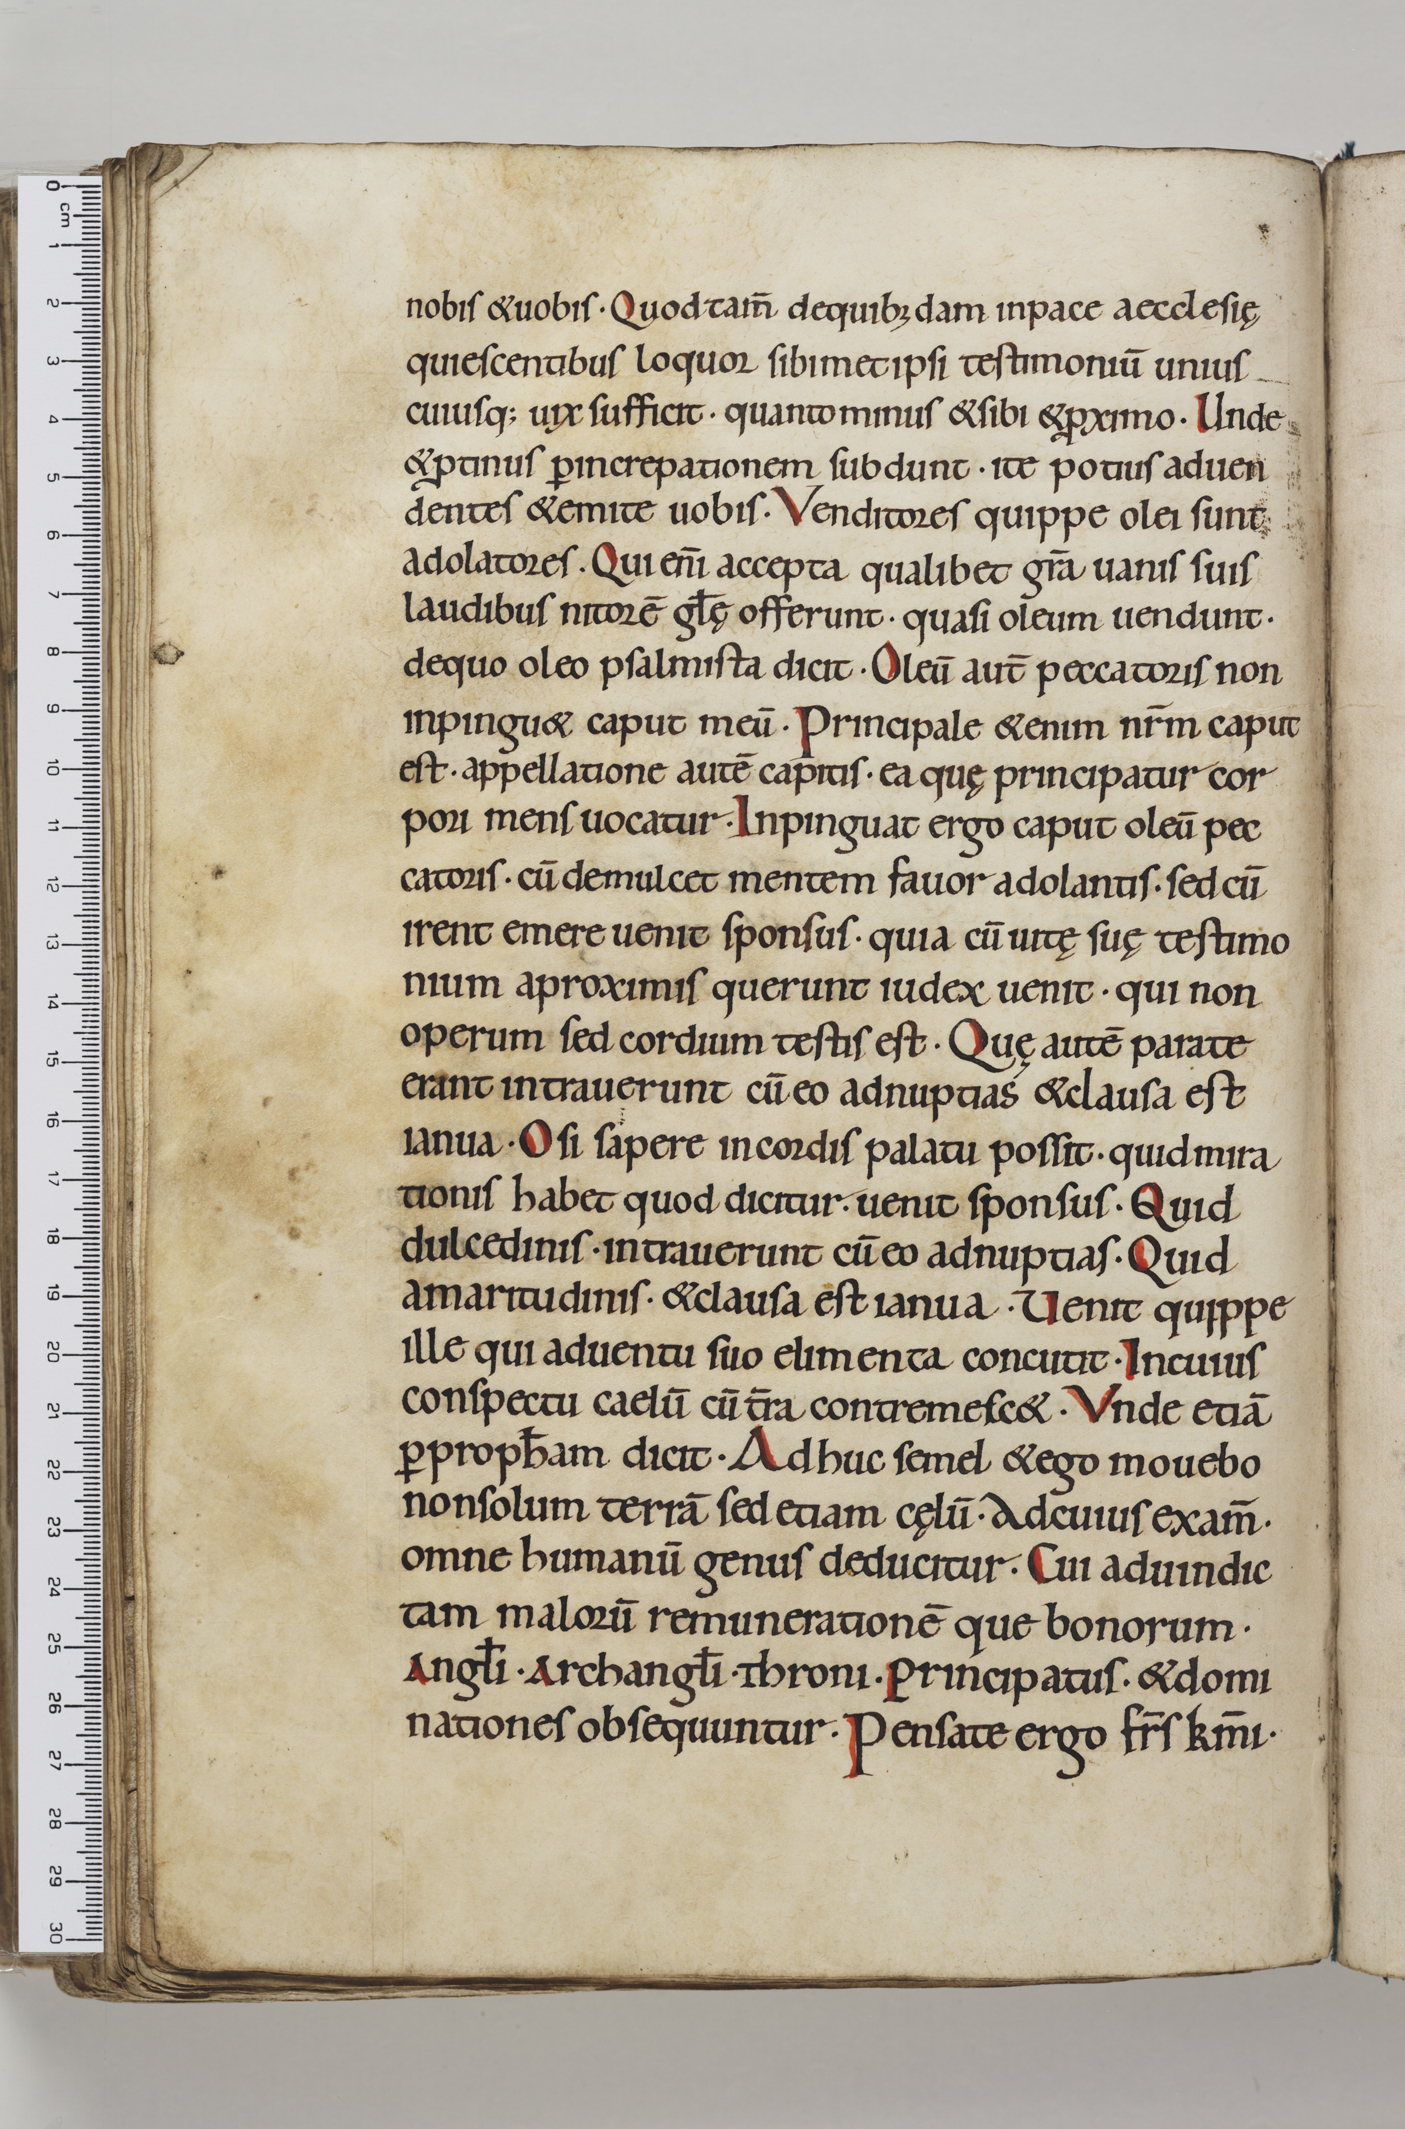 nobis &uobis · Quod tam̄ dequibꝫdam inpace aecclesię
quiescentibus loquor sibimet ipsi testimoniū unius
cuiusq; uix sufficit · quantominus &sibi &ꝓximo · Unde
&ꝓtinus ꝑincrepationem subdunt · ite potius aduen
dentes &emite uobis · Venditores quippe olei sunt
adolatores . Qui eni̅ accepta qualibet gr̄a uanis suis
laudibus nitorē gl̄ę offerunt · quasi oleum uendunt ·
dequo oleo psalmista dicit · Oleū aut̄ peccatoris non
inpingu& caput meū · Principale &enim nr̄m caput
est · appellatione autē capitis · ea quę principatur cor
pori mens uocatur · Inpinguat ergo caput oleū pec
catoris · cū demulcet mentem fauor adolantis · sed cū
irent emere uenit sponsus · quia cū uitę suę testimo
nium aproximis querunt iudex uenit · qui non
operum sed cordium testis est · Quę autē parate
erant intrauerunt cū eo adnuptias &clausa est
ianua · O si sapere incordis palatu possit · quid mira
tionis habet quod dicitur · uenit sponsus · Quid
dulcedinis · intrauerunt cū eo adnuptias · Quid
amaritudinis · &clausa est ianua · Uenit quippe
ille qui aduentu suo elimenta concutit · Incuius
conspectu caelū cū t̄ra contremesc& · Vnde etiā
ꝑproph̄am dicit · Adhuc semel &ego mouebo
nonsolum terrā sed etiam cęlū · Adcuius exam̄ ·
omne humanū genus deducitur · Cui aduindic
tam malorū remunerationē que bonorum ·
Angl̄i · Archangl̄i · Throni · Principatus · &domi
nationes obsequuntur · Pensate ergo fr̄s km̄i ·
0
cm
1
2
3
4
5
6
7
8
9
10
11
12
13
14
15
16
17
18
19
20
21
22
23
24
25
26
27
28
29
30